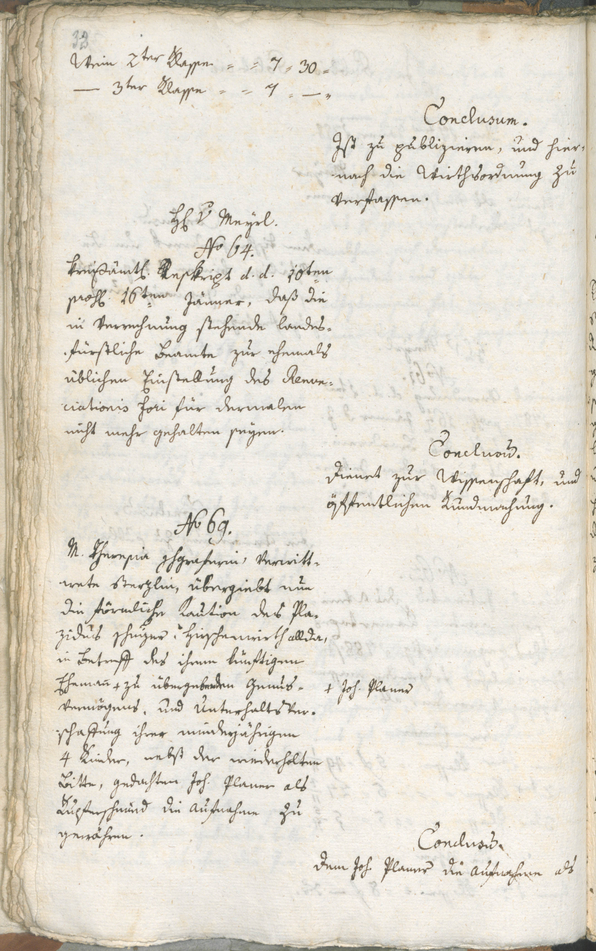 33
Wein 2ter Klasse = = 7 = 30 =
— 3ter Klasse = = 7 . — „
Conclusum.
Ist zu publizieren, und hier-
nach die Wirthsordnung zu
verfassen.
H. v Meyrl.
No 64.
kreisämtl. Reskript d. d. 10ten
präs. 16ten Jänner, daß die
in Verrechnung stehende landes-
fürstliche Beamte zur ehemals
üblichen Einstellung des Renun-
ciationis fori für dermalen
nicht mehr gehalten seyen.
Conclusum.
Dienet zur Wissenschaft, und
öffentlichen Kundmachung.
No 69.
M. Theresia verwitt-
wete Sterzlin, übergiebt nun
die förmliche Kaution des Pla-
zidus Hirschenwirth allda,
in Betreff des ihrem künftigen
Ehemann + zu übergebenden Genus-
vermögens, und Unterhaltsver-
schaffung ihrer minderjährigen
4 Kinder, nebst der wiederholten
Bitte, gedachten Joh. Planer als
Kupferschmid die Aufnahme zu
gewähren.
+ Joh. Planer
Conclusum.
Dem Joh. Planer die Aufnahme als